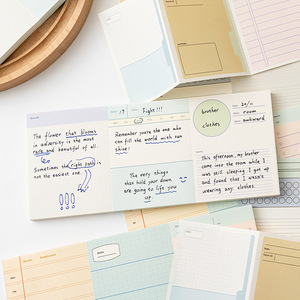 The flower that blooms
in adversity is the most
rare and beautiful of all.
Sometimes the right path is
not the easiest one.
!!!
19
Fight!!!
Remember you're the one who
can fill the world with sun
shine!
The very things
that hold your down
are going to life you
up.
brother
clothes
20/11
room
awkward
This afternoon, my brother
came into the room while I
was still sleeping. I got up
and found that I wasn't
wearing any clothes.